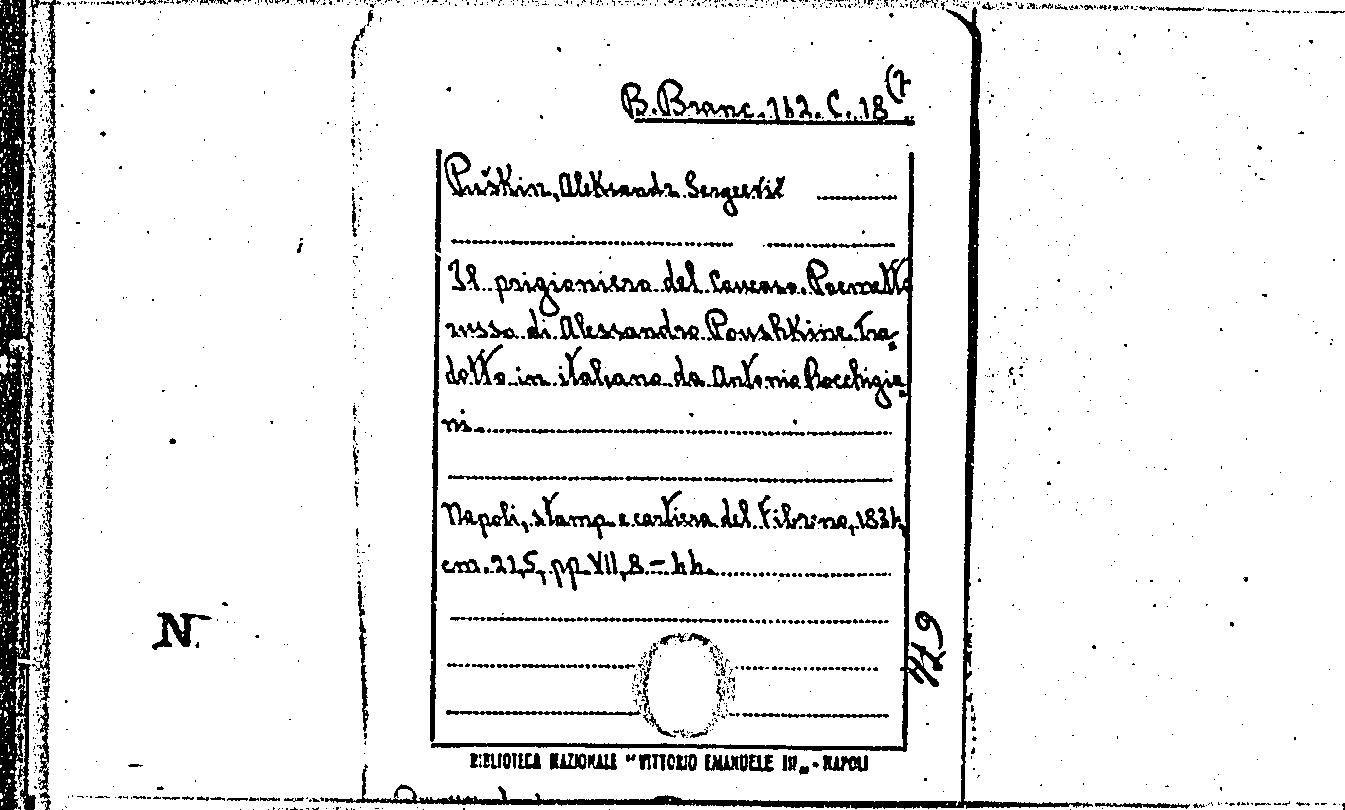 B. Branc. 162. C. 18 (7
Puškin, Aleksandr Sergeevič
Il prigioniero del Caucaso. Poemetto
russo di Alessandro Poushkine. Tra=
dotto in italiano da Antonio Rocchigia=
ni.
Napoli, stamp. e cartiera del Fibreno, 1834,
cm. 21,5, pp. VII, 8 - 44.
N.
BIBLIOTECA NAZIONALE "VITTORIO EMANUELE III„ - NAPOLI